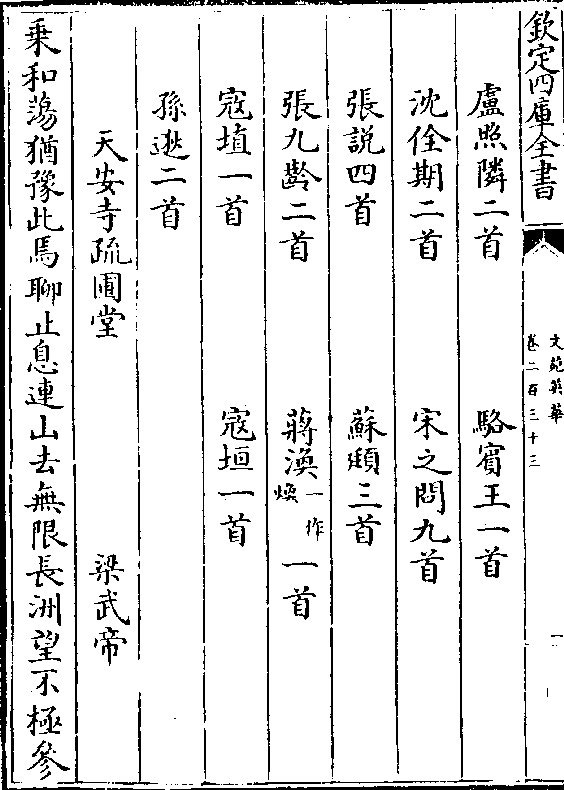 欽定四庫全書
文苑英華
卷二百三十三
一
盧照隣二首 駱賓王一首
沈佺期二首 宋之問九首
張說四首 蘇頲三首
張九齡二首 蔣渙一作煥一首
寇埴一首 寇垣一首
孫逖二首
天安寺疏圃堂 梁武帝
乗和蕩猶豫此焉聊止息連山去無限長洲望不極參